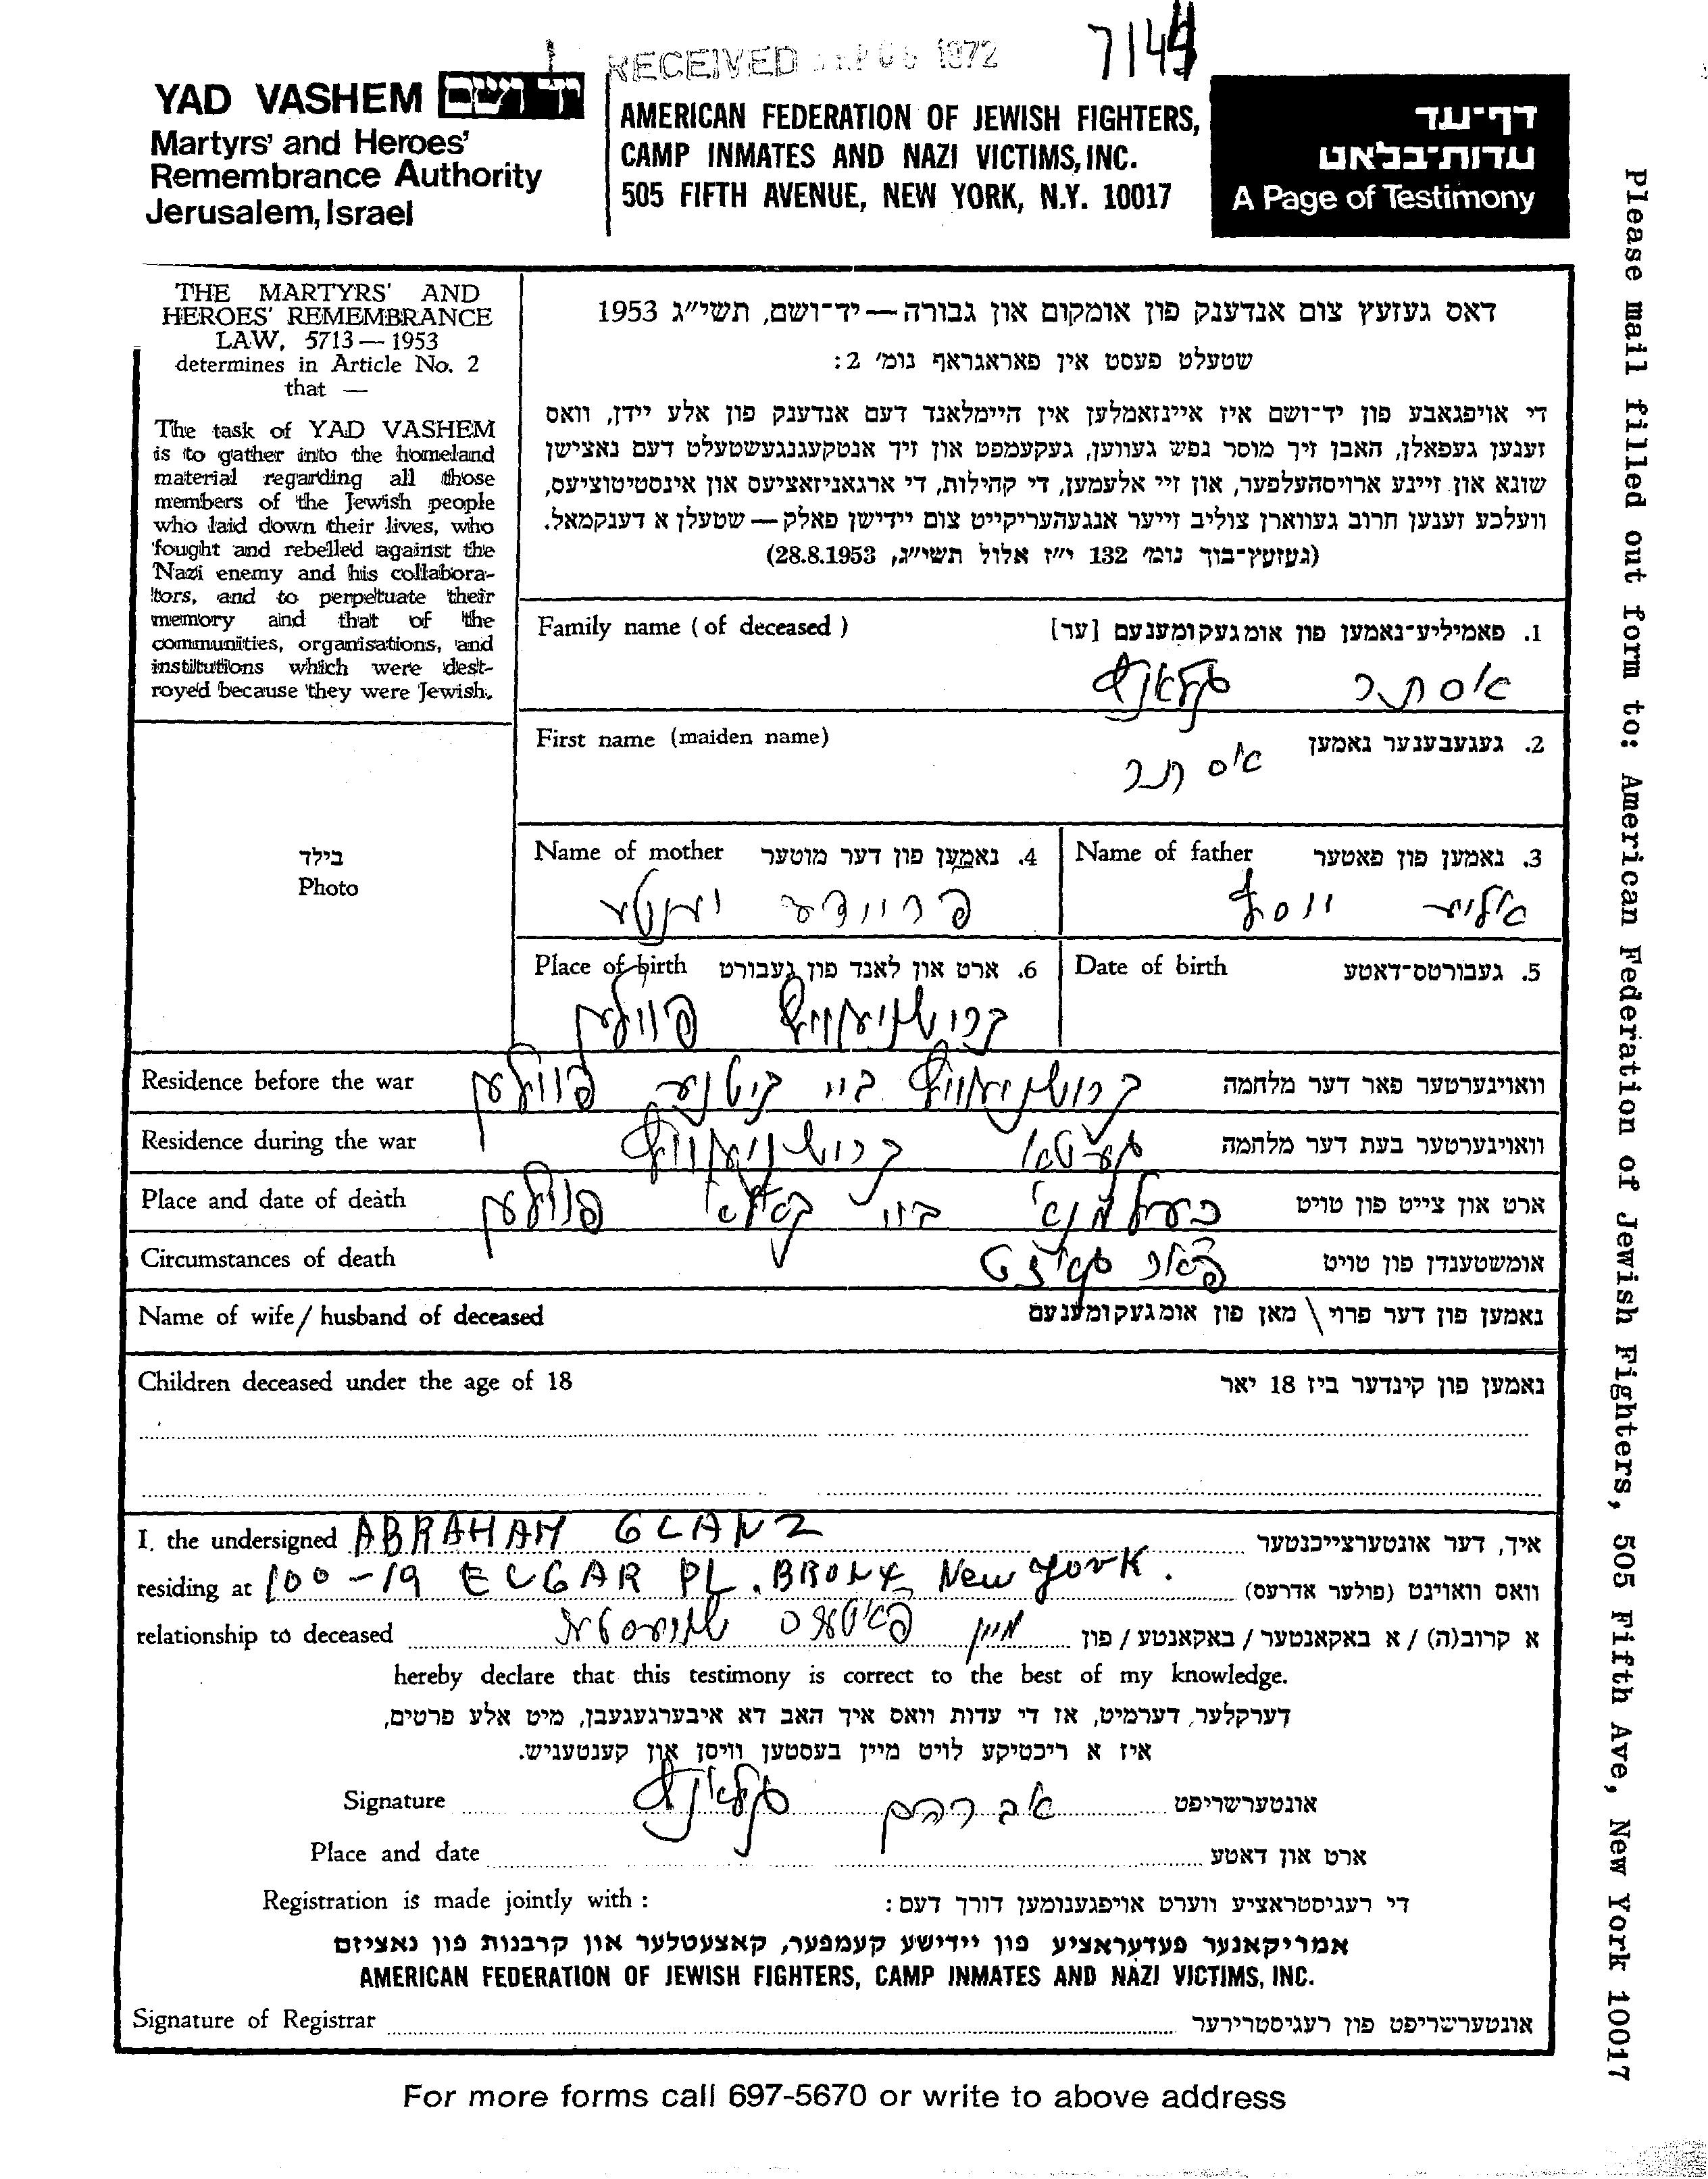 RECEIVED 1972
7144
YAD VASHEM יד ושם
Martyrs' and Heroes'
Remembrance Authority
Jerusalem, Israel
AMERICAN FEDERATION OF JEWISH FIGHTERS,
CAMP INMATES AND NAZI VICTIMS, INC.
505 FIFTH AVENUE, NEW YORK, N.Y. 10017
דף־עד
עדות־בלאט
A Page of Testimony
Please mail filled out form to: American Federation of Jewish Fighters, 505 Fifth Ave, New York 10017
THE MARTYRS' AND
HEROES' REMEMBRANCE
LAW, 5713 — 1953
determines in Article No. 2
that —
The task of YAD VASHEM
is to gather into the homeland
material regarding all those
members of the Jewish people
who laid down their lives, who
fought and rebelled against the
Nazi enemy and his collabora-
tors, and to perpetuate their
memory and that of the
communities, organisations, and
institutions which were dest-
royed because they were Jewish.
דאס געזעץ צום אנדענק פון אומקום און גבורה — יד־ושם, תשי״ג 1953
שטעלט פעסט אין פאראגראף נומ׳ 2:
די אויפגאבע פון יד־ושם איז איינזאמלען אין היימלאנד דעם אנדענק פון אלע יידן, וואס
זענען געפאלן, האבן זיך מוסר נפש געווען, געקעמפט און זיך אנטקעגנגעשטעלט דעם נאצישן
שונא און זיינע ארויסהעלפער, און זיי אלעמען, די קהילות, די ארגאניזאציעס און אינסטיטוציעס,
וועלכע זענען חרוב געווארן צוליב זייער אנגעהעריקייט צום יידישן פאלק — שטעלן א דענקמאל.
(געזעץ־בוך נומ׳ 132 י״ז אלול תשי״ג, 28.8.1953)
Family name (of deceased) 1. פאמיליע־נאמען פון אומגעקומענעם [ער]
אסתר גלאנץ
First name (maiden name) 2. געגעבענער נאמען
אסתר
בילד
Photo
Name of father 3. נאמען פון פאטער
אליע יוסף
Name of mother 4. נאמען פון דער מוטער
פריידע יענטע
Date of birth 5. געבורטס־דאטע
Place of birth 6. ארט און לאנד פון געבורט
פוילען
Residence before the war וואוינערטער פאר דער מלחמה
ביי פוילען
Residence during the war וואוינערטער בעת דער מלחמה
געטא
Place and date of death ארט און צייט פון טויט
כעלמנא ביי קאלא פוילען
Circumstances of death אומשטענדן פון טויט
Name of wife / husband of deceased נאמען פון דער פרוי \ מאן פון אומגעקומענעם
Children deceased under the age of 18 נאמען פון קינדער ביז 18 יאר
I, the undersigned ABRAHAM GLANZ איך, דער אונטערצייכנטער
residing at 100-19 ELGAR PL. BRONX, New York. וואס וואוינט (פולער אדרעס)
relationship to deceased א קרוב(ה) / א באקאנטער / באקאנטע / פון מיין פאטערס שוועסטער
hereby declare that this testimony is correct to the best of my knowledge.
דערקלער, דערמיט, אז די עדות וואס איך האב דא איבערגעגעבן, מיט אלע פרטים,
איז א ריכטיקע לויט מיין בעסטען וויסן און קענטעניש.
Signature אונטערשריפט אברהם גלאנץ
Place and date ארט און דאטע
Registration is made jointly with : די רעגיסטראציע ווערט אויפגענומען דורך דעם:
אמריקאנער פעדעראציע פון יידישע קעמפער, קאצעטלער און קרבנות פון נאציזם
AMERICAN FEDERATION OF JEWISH FIGHTERS, CAMP INMATES AND NAZI VICTIMS, INC.
Signature of Registrar אונטערשריפט פון רעגיסטרירער
For more forms call 697-5670 or write to above address